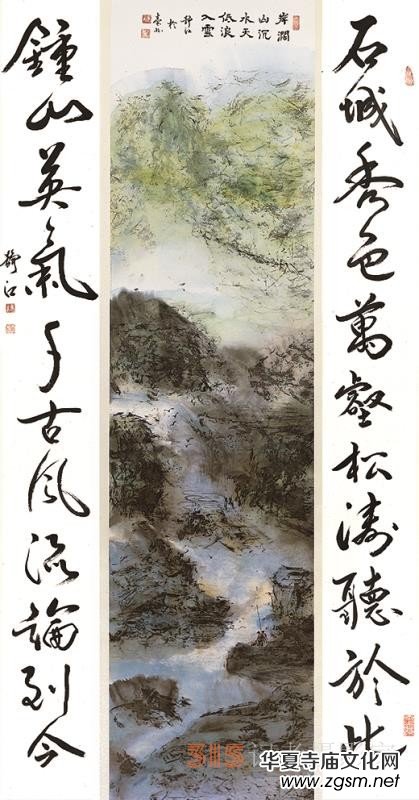 石城秀色萬壑松濤聽於此
岸濶
山沉
水天
低浪
入雲
靜江
於
鍾山英氣千古風流論到今
靜江
华夏寺庙文化网
www.zgsm.net